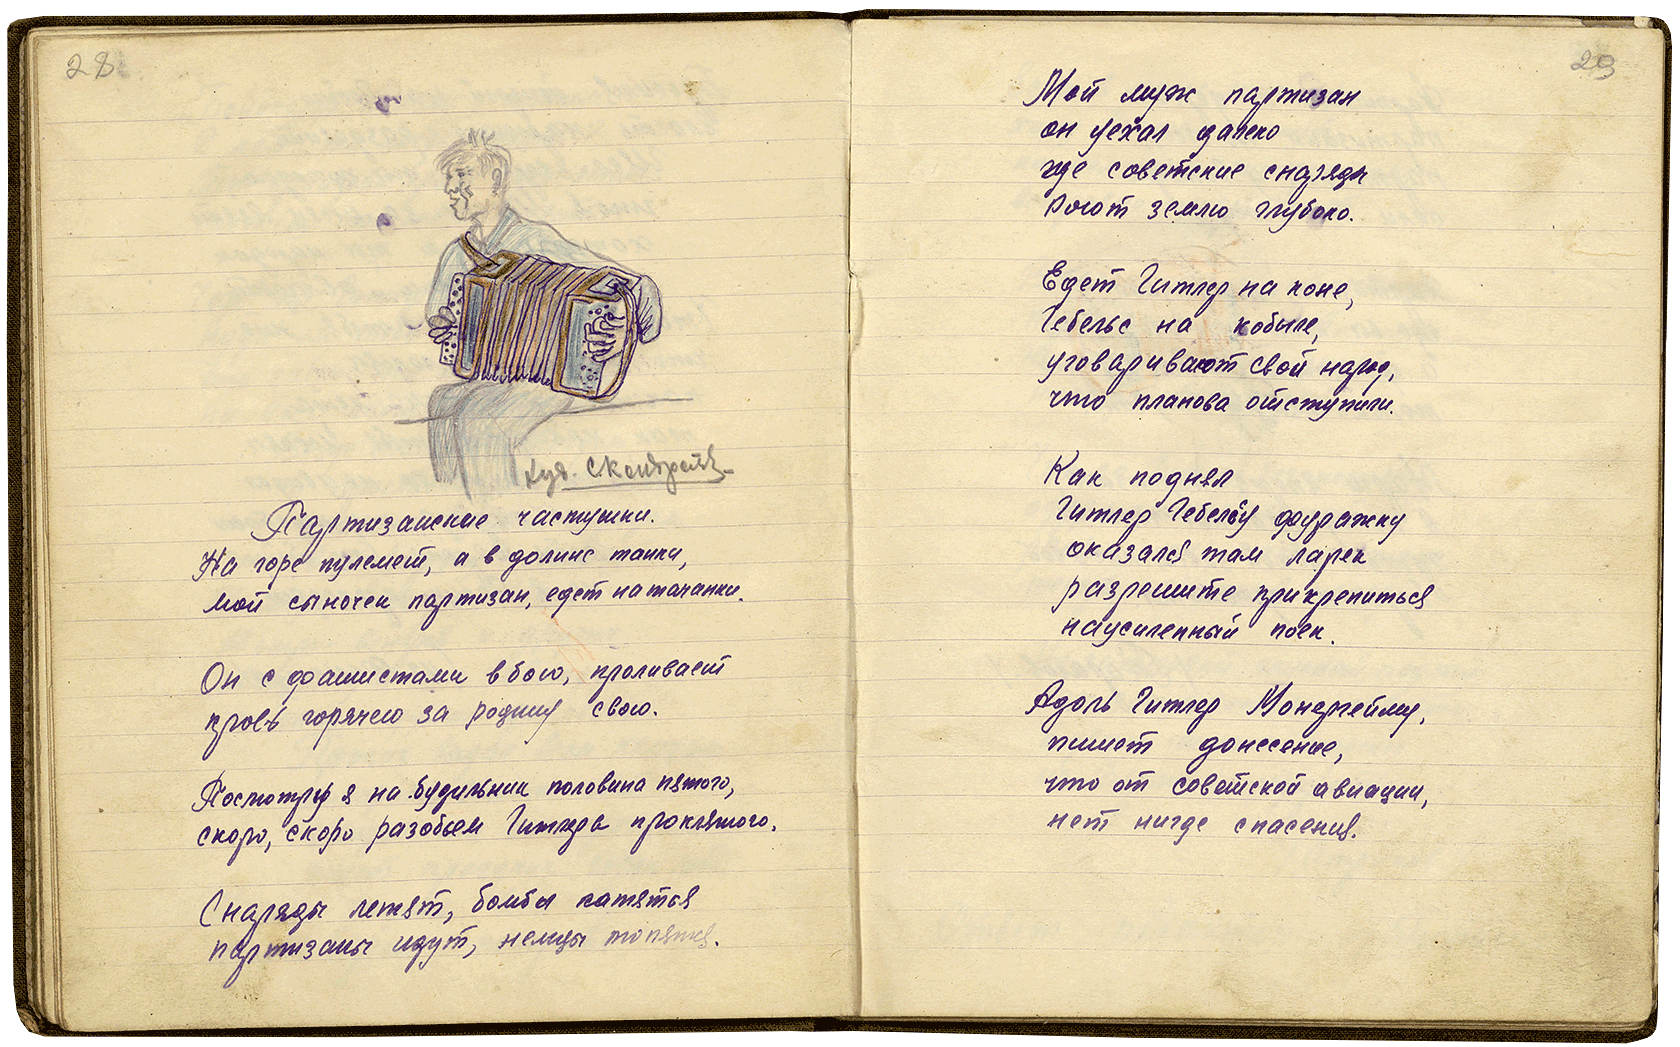 28
Худ. С Кондратьев
Партизанские частушки.
На горе пулемет, а в долине танки,
мой сыночек партизан, едет на тачанки.
Он с фашистами в бою, проливает
кровь горячею за родину свою.
Посмотрю я на будильник половина пятого,
скоро, скоро разобьем Гитлера проклятого.
Снаряды летят, бомбы катятся
партизаны идут, немцы топятся.
29
Мой муж партизан
он уехал далеко
где советские снаряды
роют землю глубоко.
Едет Гитлер на коне,
Гебельс на кобыле,
уговаривают свой народ,
что планова отступили.
Как поднял
Гитлер Гебельсу фуражку
оказался там ларек
разрешите прикрепиться
на усиленный паек.
Адоль Гитлер Монергейму,
пишет донесение,
что от советской авиации,
нет нигде спасения.